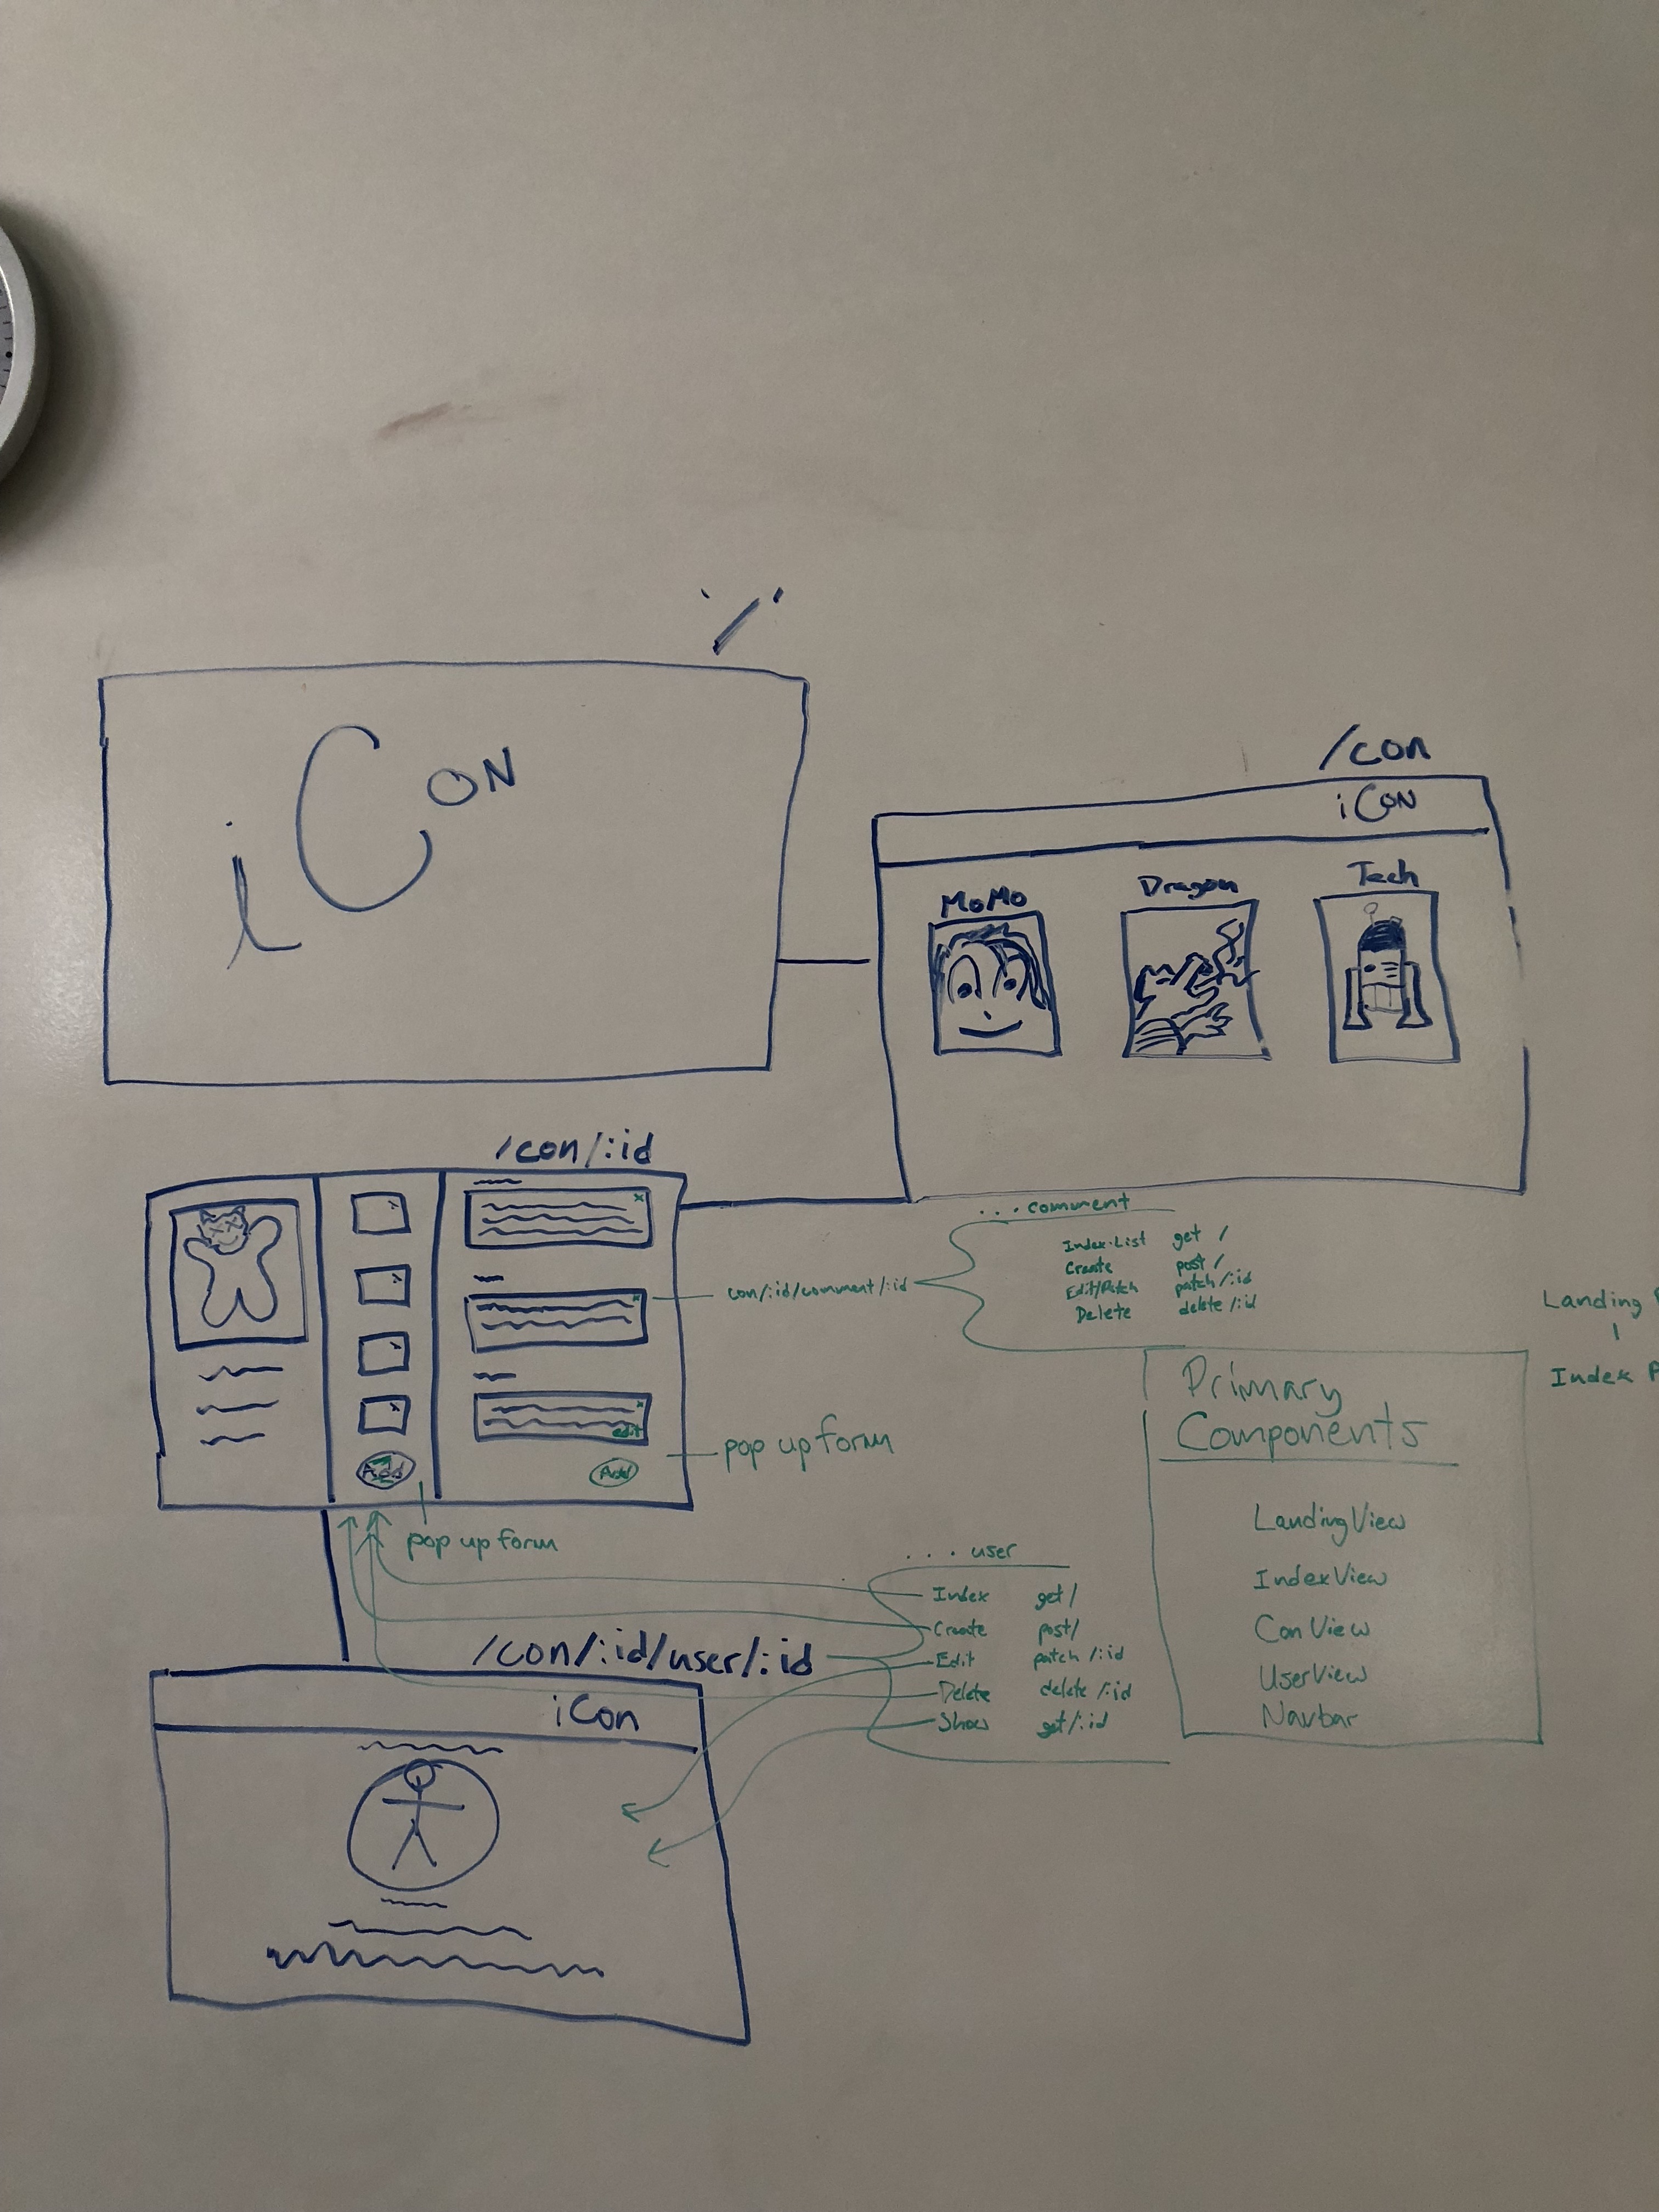 '/'
iCON
/con
iCON
MoMo
Dragon
Tech
/con/:id
x
x
x
edit
Add
Add
pop up form
pop up form
con/:id/comment/:id
... comment
Index-List get /
Create post /
Edit/Patch patch /:id
Delete delete /:id
Landing
Index
Primary
Components
LandingView
IndexView
ConView
UserView
Navbar
... user
Index get /
Create post/
Edit patch /:id
Delete delete /:id
Show get/:id
/con/:id/user/:id
iCon